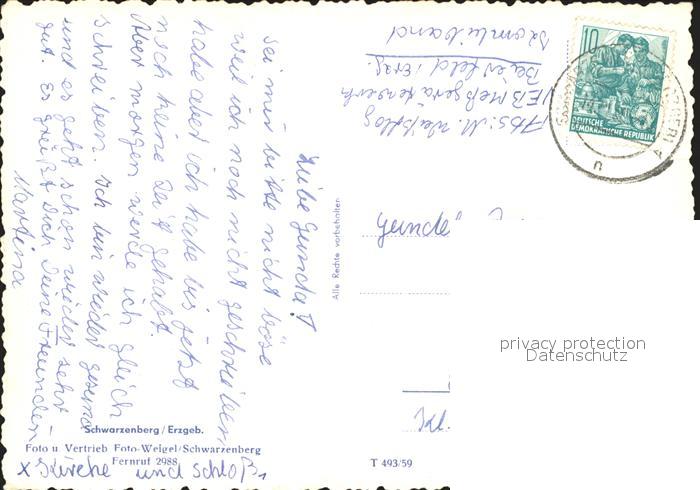 Liebe Gunda!
Sei mir bitte nicht böse
weil ich noch nicht geschrieben
habe aber ich habe bis jetzt
noch keine Zeit gehabt.
Aber morgen werde ich gleich
schreiben. Ich bin wieder gesund
und es geht schon wieder sehr
gut. Es grüßt Dich Deine Freundin
Martina
Schwarzenberg / Erzgeb.
Foto u. Vertrieb Foto-Weigel/Schwarzenberg
Fernruf 2988
x Kirche und Schloß
Alle Rechte vorbehalten
T 493/59
Abs. M.
VEB Meßgerätewerk
Beierfeld i. Erzg.
10
DEUTSCHE
DEMOKRATISCHE REPUBLIK
Kl.
privacy protection
Datenschutz